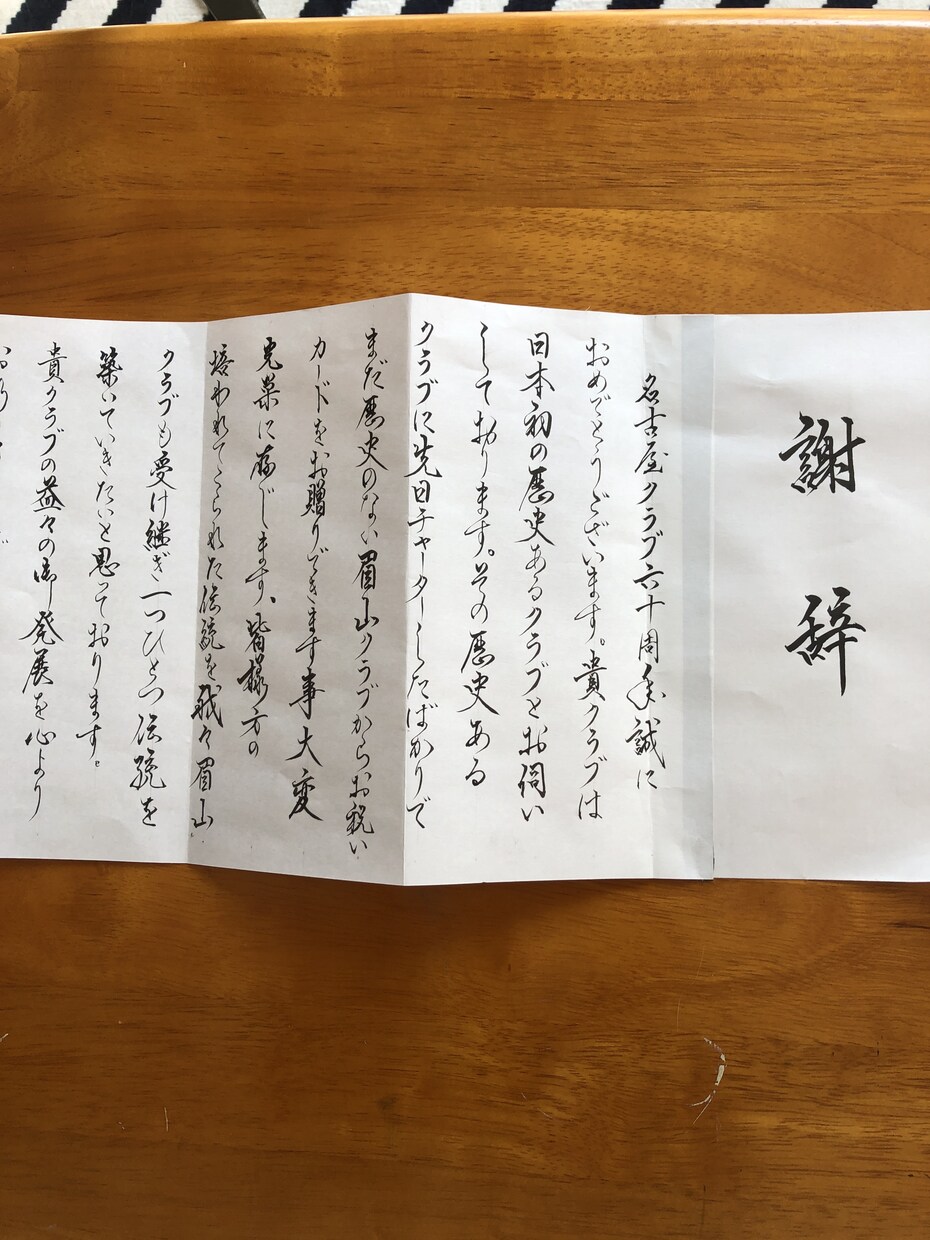 謝辞
名古屋クラブ六十周年誠に
おめでとうございます。貴クラブは
日本初の歴史あるクラブとお伺い
しております。その歴史ある
クラブに先日チャーターしたばかりで
まだ歴史のない眉山クラブからお祝い
カードをお贈りできます事大変
光栄に存じます。皆様方の
培われてこられた伝統を我々眉山
クラブも受け継ぎ一つひとつ伝統を
築いていきたいと思っております。
貴クラブの益々の御発展を心より